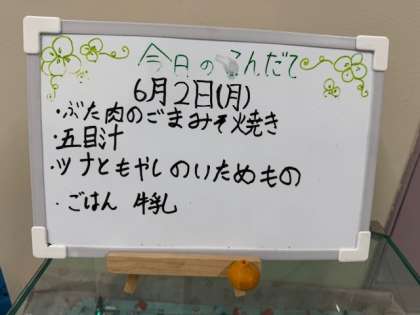 今日のこんだて
6月2日(月)
・ぶた肉のごまみそ焼き
・五目汁
・ツナともやしのいためもの
・ごはん 牛乳